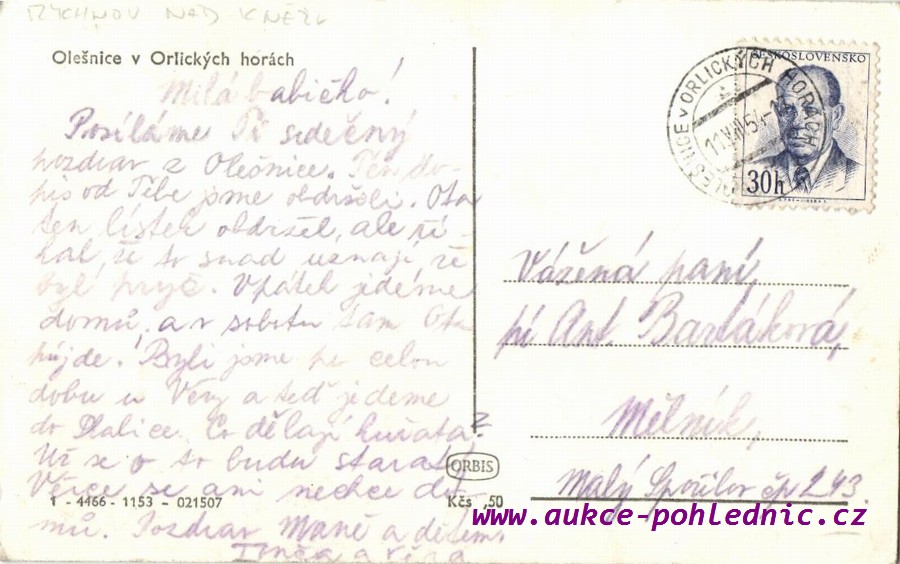 RYCHNOV NAD KNĚŽ.
Olešnice v Orlických horách
Milá babičko!
Posíláme Ti srdečný
pozdrav z Olešnice. Ten do-
pis od Tebe jsme obdrželi. Ota
ten lístek obdržel, ale ří-
kal, že to snad uznají, že
byl pryč. V pátek jedeme
domů, a v sobotu tam Ota
půjde. Byli jsme po celou
dobu u Věry a teď jedeme
do Skalice. Co dělají kuřata?
Už se o to budu starat.
Věře se ani nechce do-
mů. Pozdrav Maně a dětem.
a Věra
1 - 4466 - 1153 - 021507
ORBIS
Kčs ,50
ČESKOSLOVENSKO
30h
OLEŠNICE v ORLICKÝCH HORÁCH
Vážená paní,
pí Ant. Bartáková,
Mělník,
Malý Spořilov čp 243.
www.aukce-pohlednic.cz